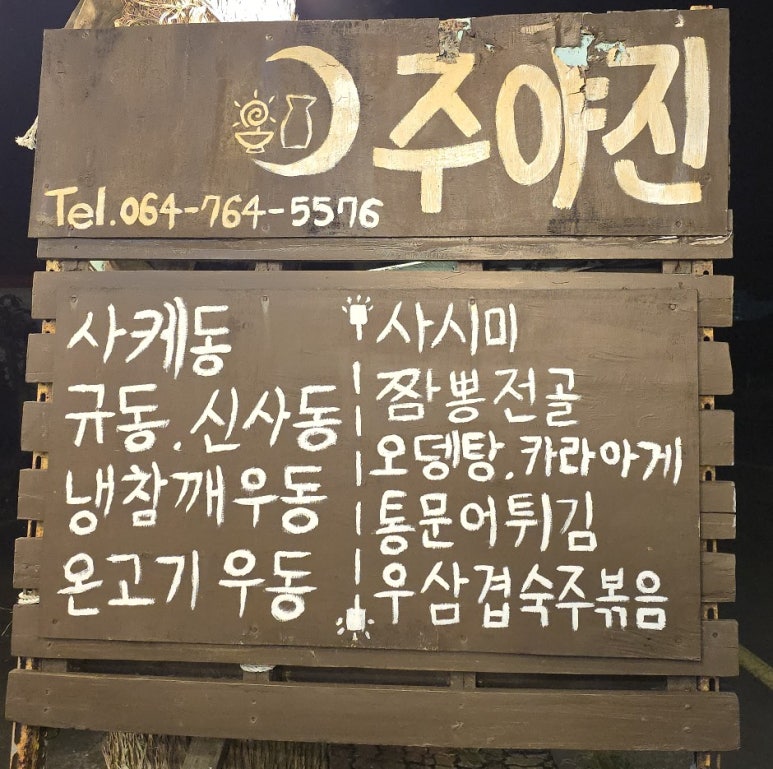 주야진
Tel. 064-764-5576
사케동
규동.신사동
냉참깨우동
온고기우동
사시미
짬뽕전골
오뎅탕.카라아게
통문어튀김
우삼겹숙주볶음